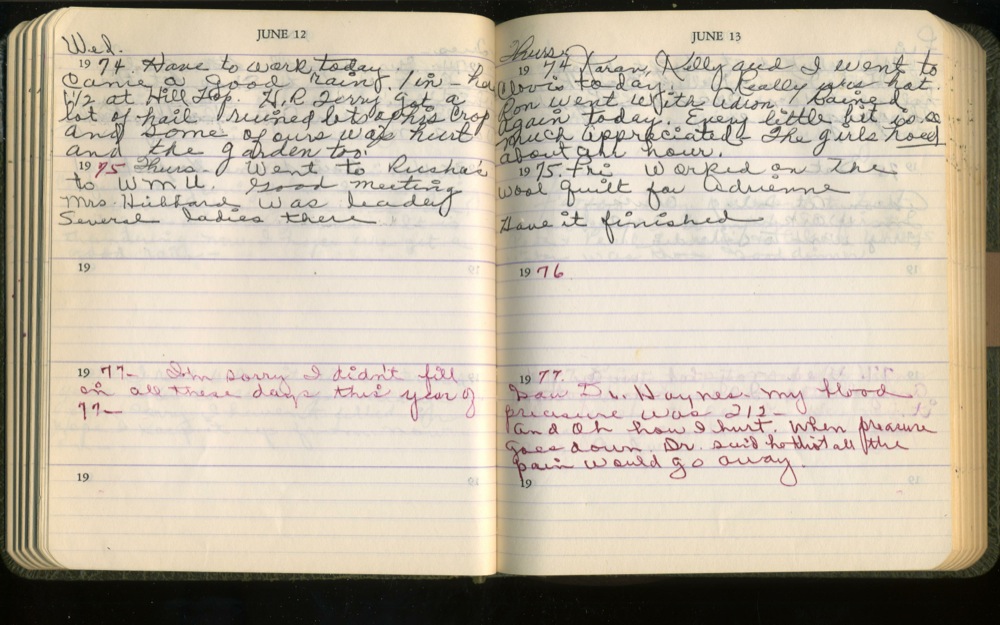 JUNE 12
Wed.
1974. Have to work today.
Came a good rain. 1 in - ha
1/2 at Hill Top. H.P. Terry got a
lot of hail ruined lots of his crop
and some of ours was hurt
and the garden too.
1975 Thurs. Went to
to W M U. Good meeting
Mrs. Hibbard was leader
Several ladies there
19
1977- I'm sorry I didn't fill
in all these days this year of
77-
19
JUNE 13
Thurs.
1974 Karan, Kelly and I went to
Clovis today. Really was hot.
Ron went with Rained
again today. Every little bit is so
much appreciated - The girls hoed
about an hour.
1975. Fri Worked on the
wool quilt for Adrienne
Have it finished
1976
1977.
Saw Dr. Haynes. My blood
preasure was 212-
and Oh how I hurt. When preasure
goes down. Dr. said all the
pain would go away.
19